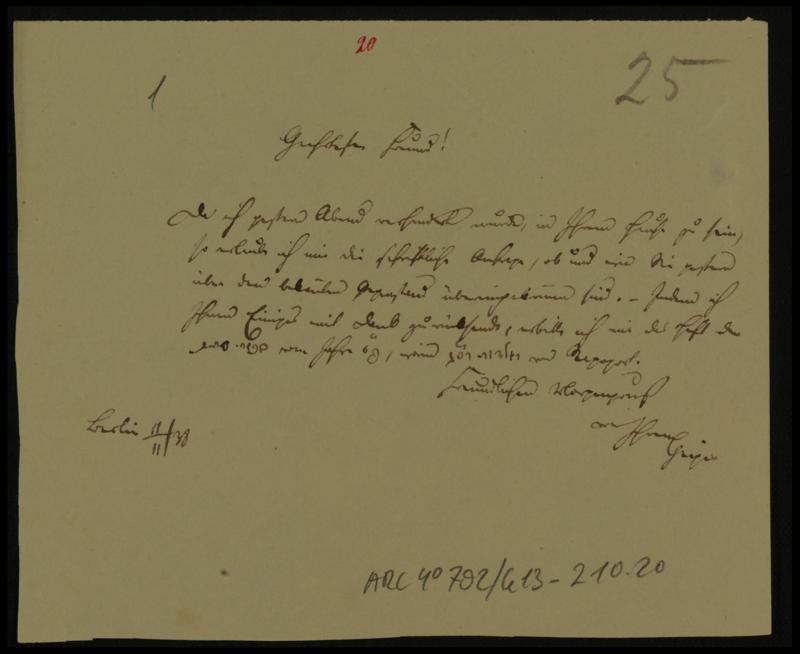 20
1
25
Geehrtester Freund!
Da ich gestern Abend verhindert wurde, in Ihrem Hause zu sein,
so erlaube ich mir die schriftliche Anfrage, ob und wie Sie gestern
über den bewußten Gegenstand übereingekommen sind. – Indem ich
Ihnen Einiges mit Dank zurücksende, erbitte ich mir das Heft der
vom Jahre, von Rapoport.
Freundlichen Morgengruß
von Ihrem
Geiger
Berlin 11/11 38
ARC 4° 792/G13-210.20